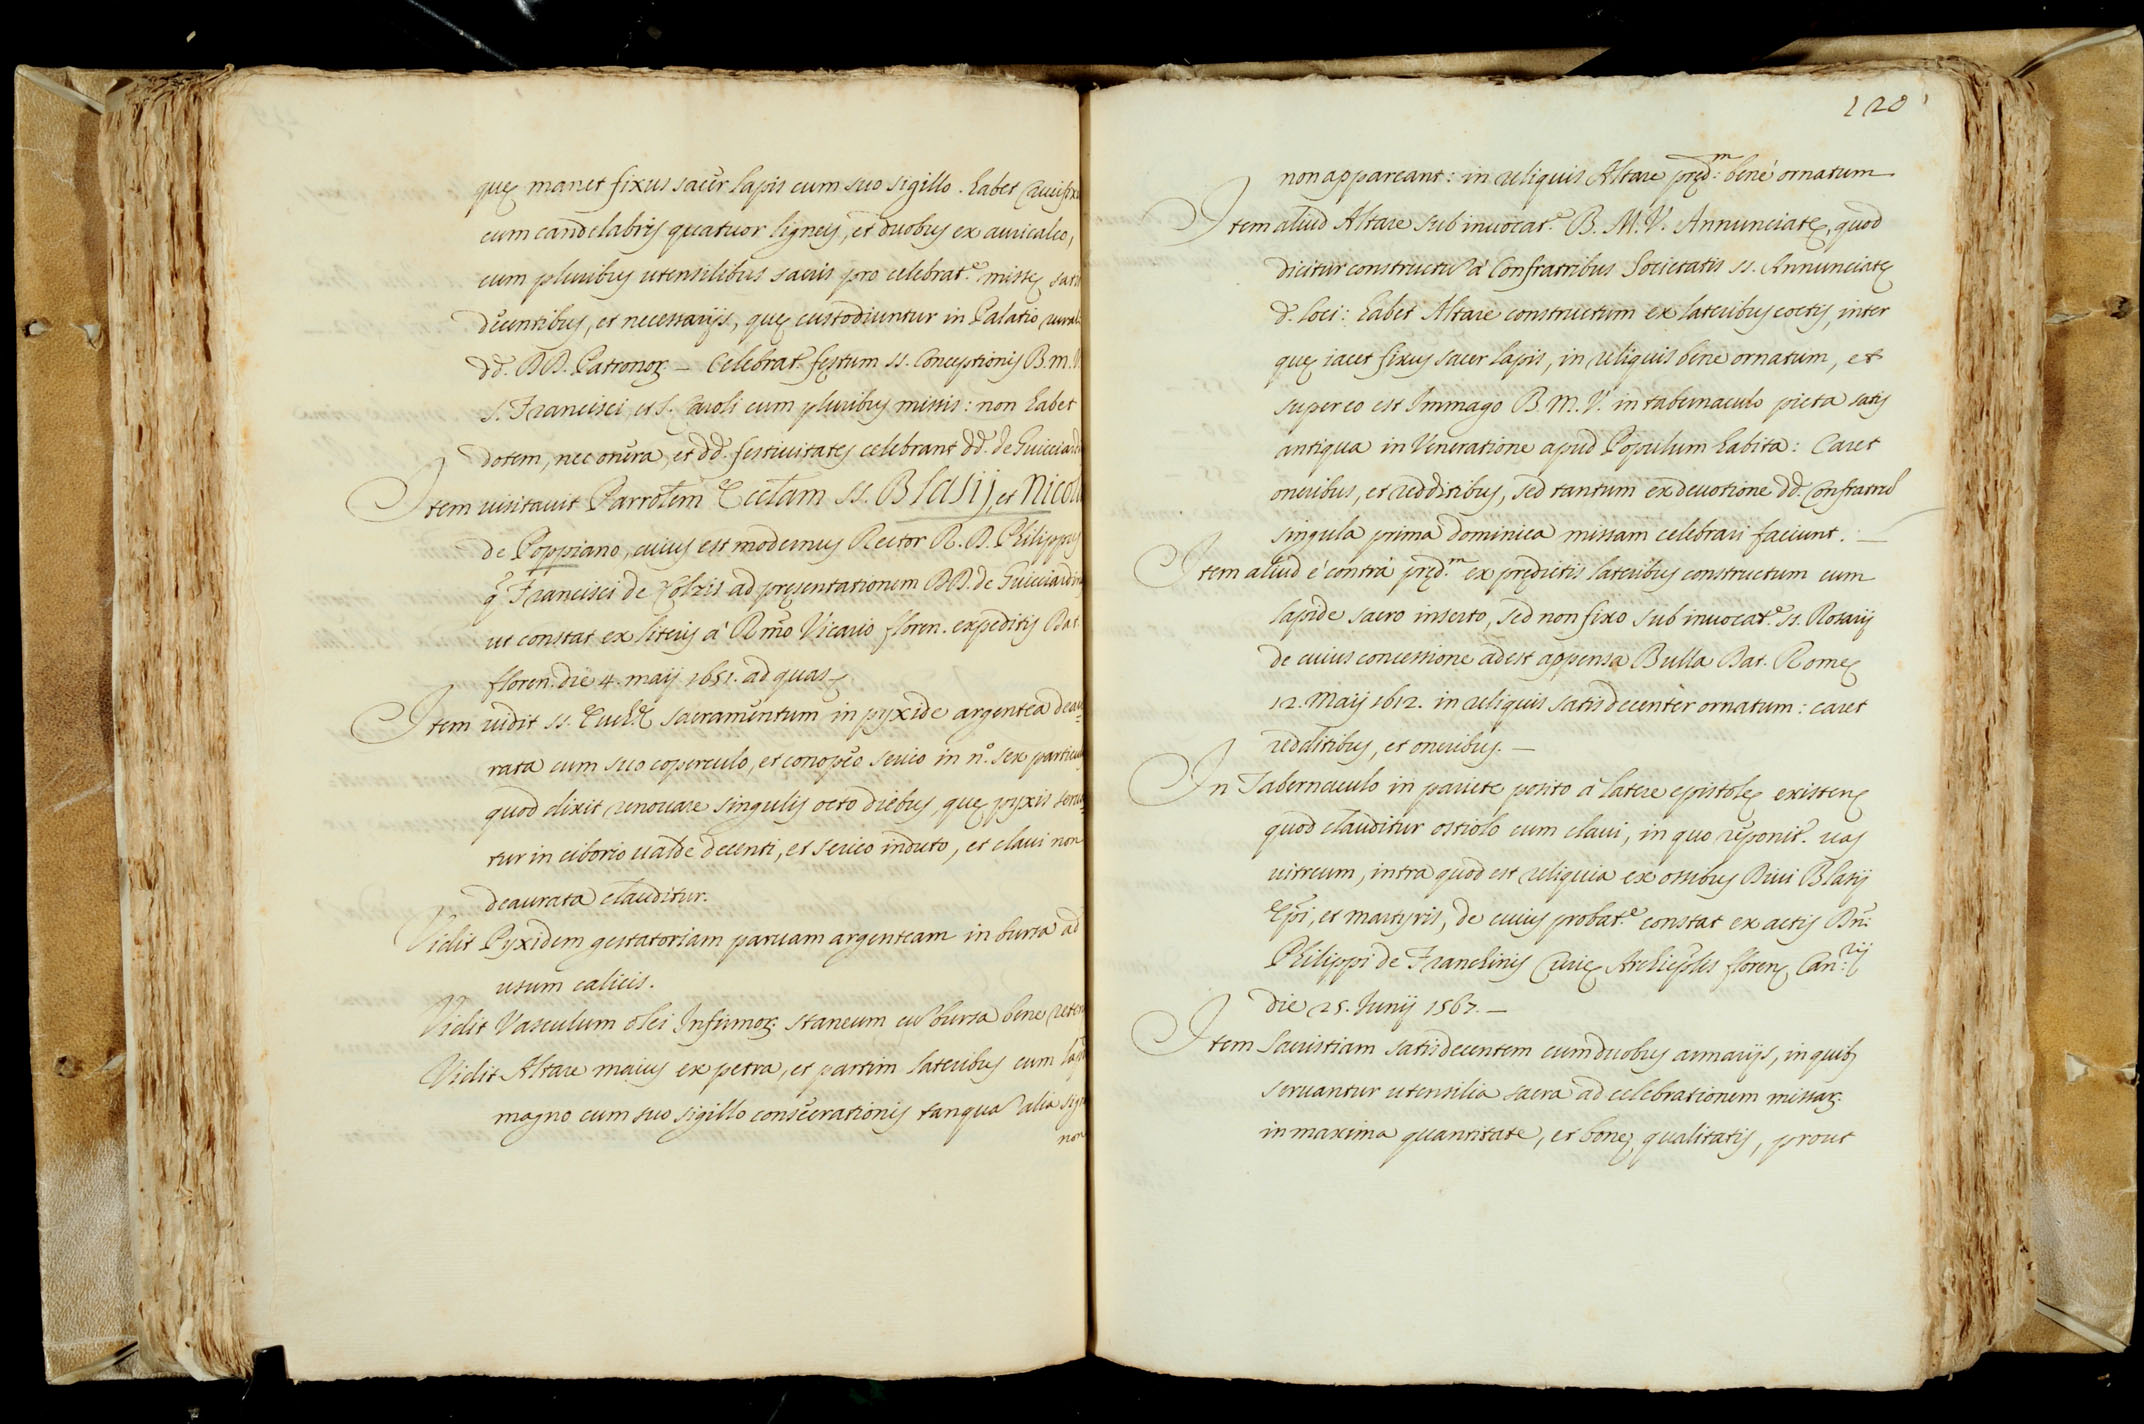 quę manet fixus sacer lapis cum suo sigillo. habet Crucifixu
cum candelabris quatuor ligneis, et duobus ex auricalco,
cum pluribus utensilibus sacris pro celebrat.e missę satis
decentibus, et necessarijs, quę custodiuntur in Palatio rurali
dd. DD. Patronoꝝ — Celebrat.r festum ss. Conceptionis B. M. V.
s. Francisci, et s. Caroli cum pluribus missis: non habet
dotem, nec onera, et dd. festiuitates celebrant dd. de Guicciard
Item uisitauit Parrolem Eccłam ss. Blasij, et Nicola
de Poppiano, cuius est modernus Rector R. D. Philippus
q. Francisci de ad pręsentationem DD. de Guicciardin
ut constat ex literis à Rmo Vicario floren. expeditis Dat.
floren. die 4. maij 1651. ad quas
Item uidit ss. Euch.ę sacramentum in pyxide argentea deau=
rata cum suo coperculo, et conopeo serico in n.o sex particul
quod dixit renouare singulis octo diebus, quę pyxis serua=
tur in ciborio ualde decenti, et serico induto, et claui non
deaurata clauditur.
Vidit Pyxidem gestatoriam paruam argenteam in bursa ad
usum calicis.
Vidit Vasculum olei Infirmoꝝ staneum cu bursa bene reten
Vidit Altare maius ex petra, et partim lateribus cum lap
magno cum suo sigillo consecrationis tanqua alia sig
non
120
non appareant: in reliquis Altare pręd.m benè ornatum
Item aliud Altare sub inuocat.e B. M. V. Annunciatę, quod
dicitur constructu à Confratribus Societatis ss. Annunciatę
d. loci: habet Altare constructum ex lateribus coctis, inter
quę iacet fixus sacer lapis, in reliquis bene ornatum, et
super eo est Immago B. M. V. in tabernaculo picta satis
antiqua in Veneratione apud Populum habita: Caret
oneribus, et redditibus, sed tantum ex deuotione dd. Confratru
singula prima dominica missam celebrari faciunt. —
Item aliud è contra pręd.m ex prędictis lateribus constructum cum
lapide sacro inserto, sed non fixo sub inuocat.e ss. Rosarij
de cuius concessione adest appensa Bulla Dat. Romę
12. Maij 1612. in reliquis satis decenter ornatum: caret
redditibus, et oneribus. —
In Tabernaculo in pariete posito à latere epistolę existenę
quod clauditur ostiolo cum claui, in quo reponit.r uas
uitreum, intra quod est reliquia ex ossibus Diui Blasij
Epi, et martyris, de cuius probat.e constat ex actis Dni:
Philippi de Franchinis Curię Archiepłis florenę Can:rij
die 25. Junij 1567. —
Item Sacristiam satis decentem cum duobus armarijs, in quibꝫ
seruantur utensilia sacra ad celebrationem missaꝝ
in maxima quantitate, et bonę qualitatis, prout